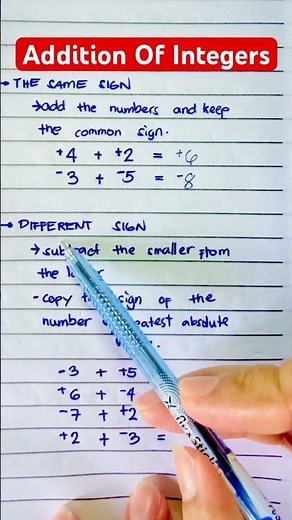 Addition Of Integers
THE SAME SIGN
→ add the numbers and keep
the common sign.
+4 + +2 = +6
-3 + -5 = -8
DIFFERENT SIGN
→ subtract the smaller from
the
- copy sign of the
number absolute
-3 + +5
+6 + -4
-7 + +2
+2 + -3 =